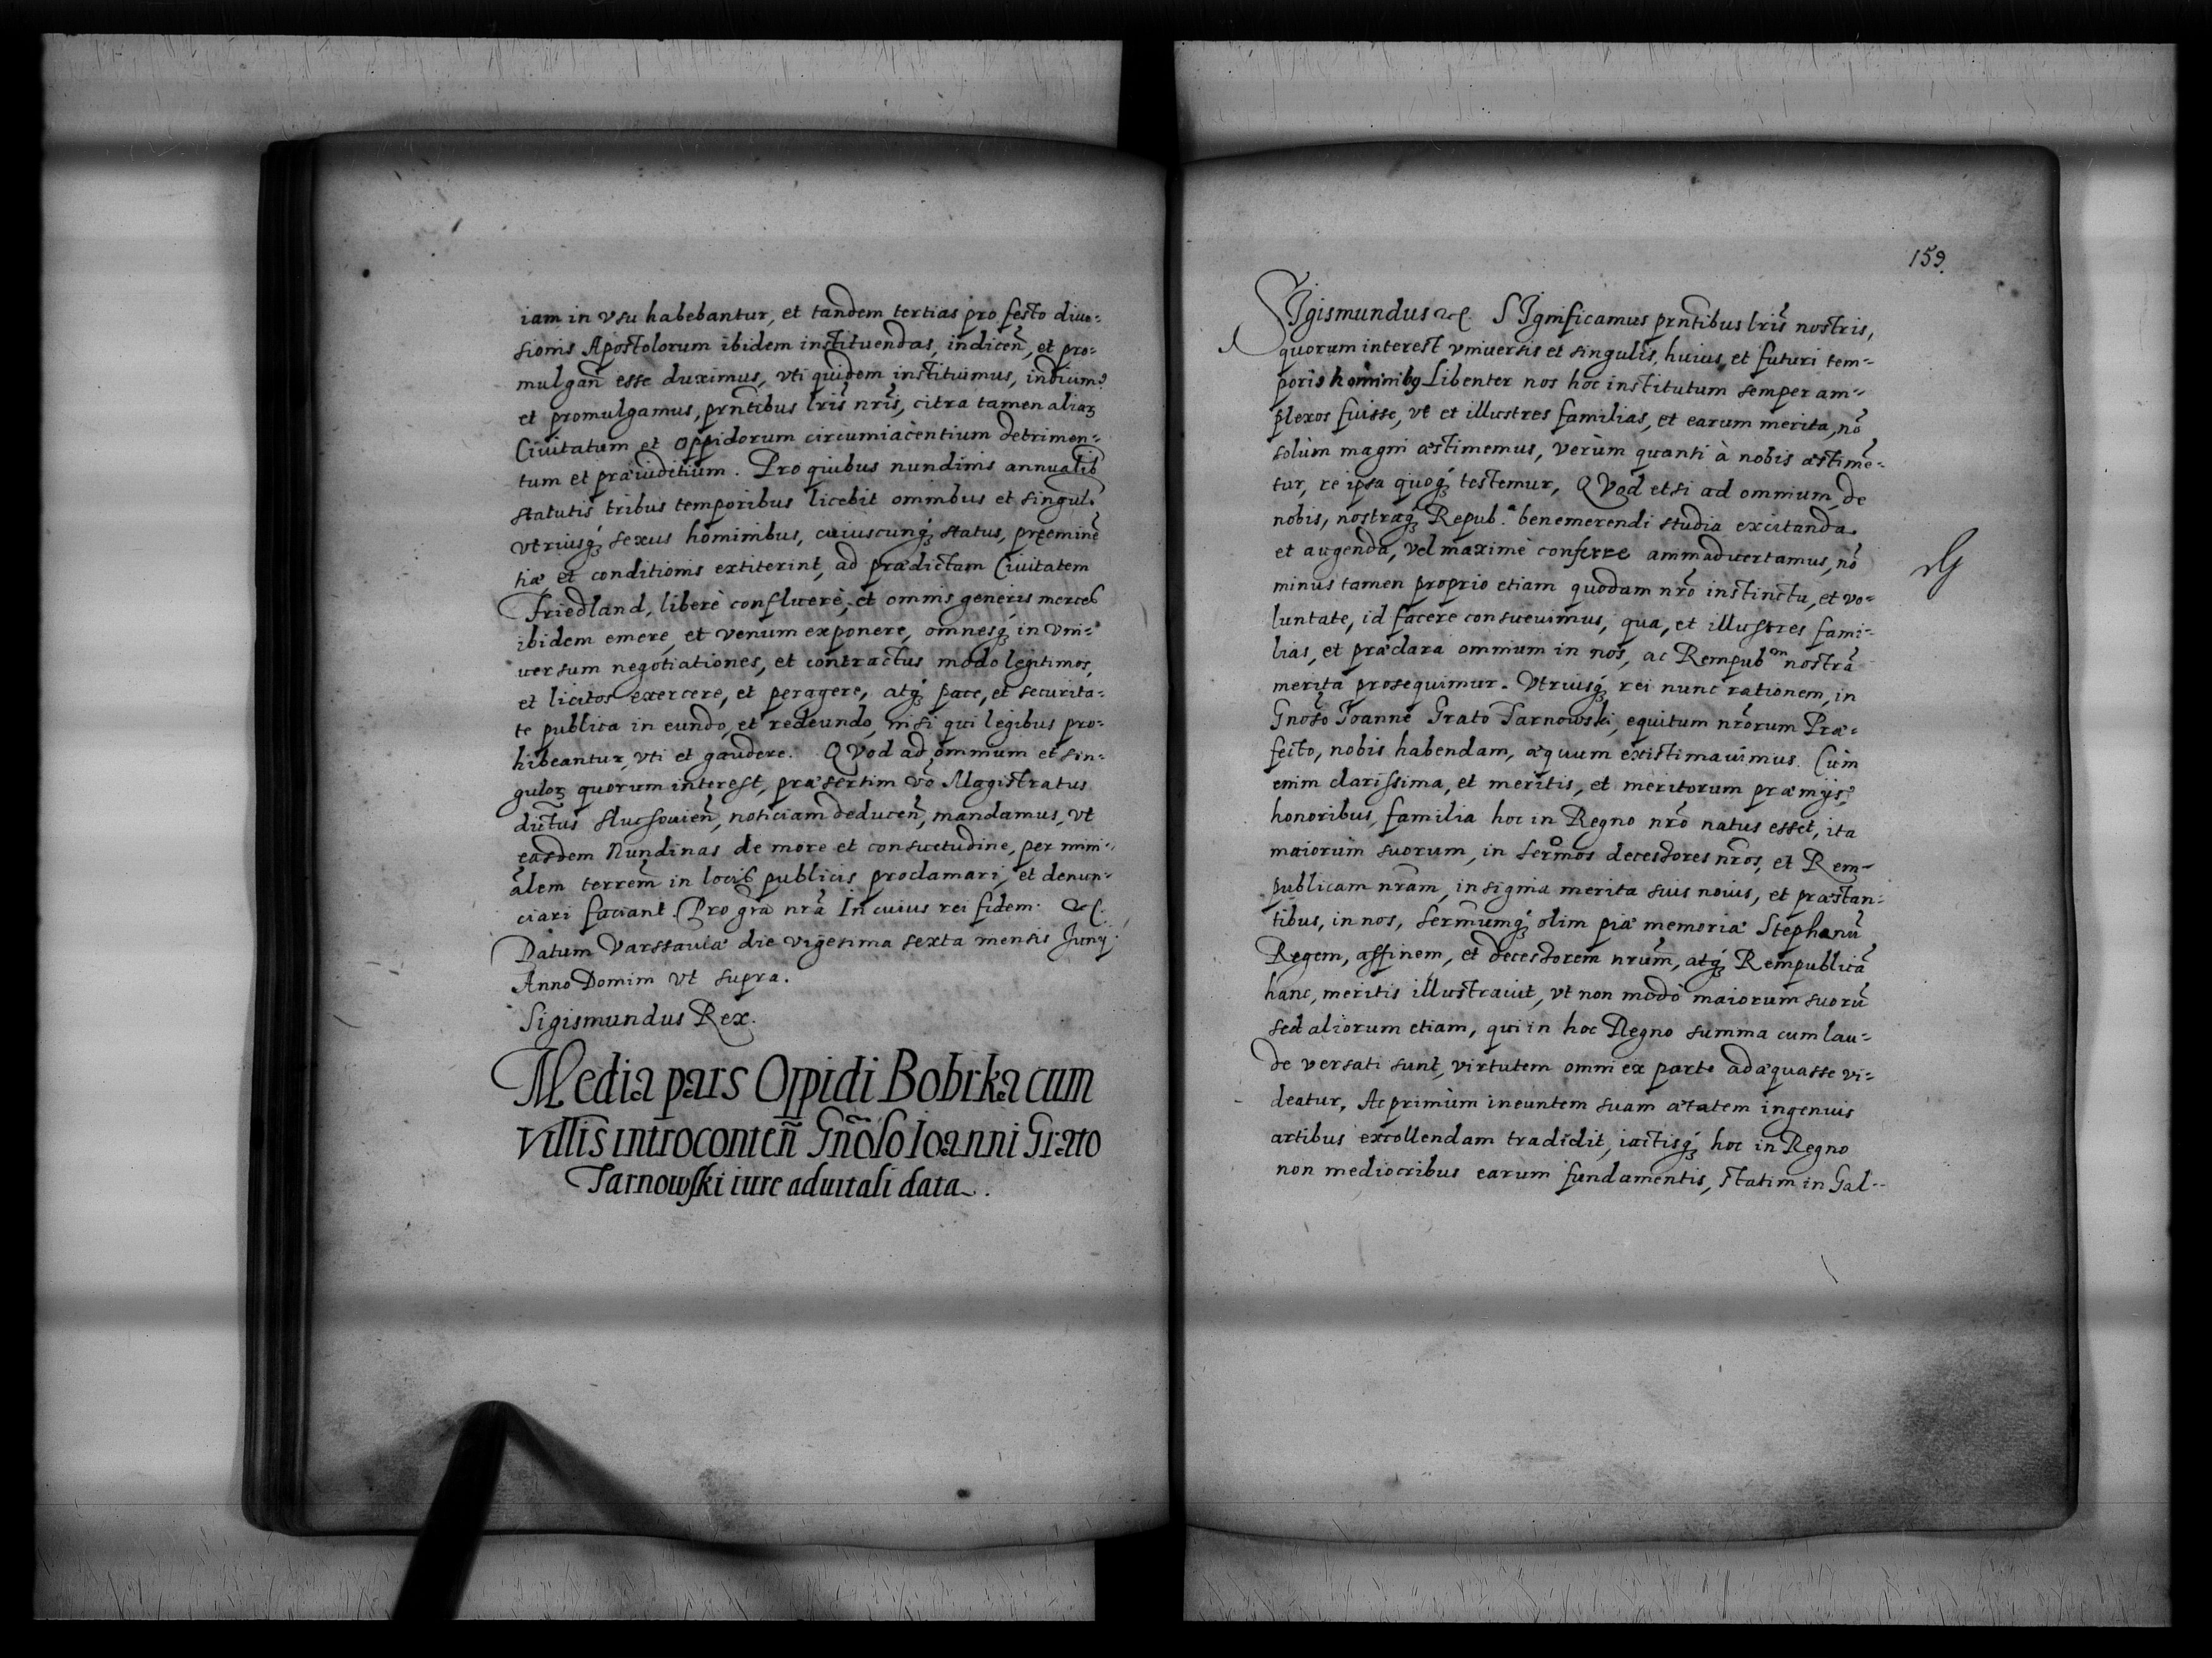 iam in vsu habebantur, et tandem tertias pro festo diui-
sionis Apostolorum ibidem instituendas, indiceñ, et pro-
mulgañ esse duximus, vti quidem instituimus, indicimus
et promulgamus, prñtibus lris nris, citra tamen aliaꝝ
Ciuitatum et Oppidorum circumiacentium detrimen-
tum et præiuditium. Pro quibus nundinis annualib
statutis tribus temporibus licebit omnibus et singul
vtriusqꝫ sexus hominibus, cuiuscunqꝫ status, preeminē
tiæ et conditionis extiterint, ad prædictam Ciuitatem
Friedland, liberè confluere, et omnis generis merces
ibidem emere, et venum exponere, omnesqꝫ in vni-
uersum negotiationes, et contractus modo legitimos,
et licitos exercere, et peragere, atqꝫ pace, et securita-
te publica in eundo, et redeundo, nisi qui legibus pro-
hibeantur, vti et gaudere. QVod ad omnium et sin-
guloꝝ quorum interest, præsertim vo Magistratus
dictus Sluchouieñ, noticiam deduceñ, mandamus, vt
easdem Nundinas de more et consuetudine, per mini-
alem terrem in locis publicis proclamari, et denun-
ciari faciant. Pro gra nrā In cuius rei fidem &c.
Datum Varssauiæ die vigesima sexta mensis Junij
Anno Domini vt supra.
Sigismundus Rex.
Media pars Oppidi Bobrka cum
villis introconteñ Gñoso Ioanni Grato
Tarnowski iure aduitali data.
159.
SIgismundus &c. SIgnificamus prñtibus lris nostris,
quorum interest vniuersis et singulis, huius, et futuri tem-
poris hominibꝰ Libenter nos hoc institutum semper am-
plexos fuisse, vt et illustres familias, et earum merita, nō
solùm magni æstimemus, verùm quanti à nobis æstimē-
tur, re ipsa quoqꝫ testemur, QVod etsi ad omnium de
nobis, nostraqꝫ Repub.ᵃ benemerendi studia excitanda
et augenda, vel maximè conferre animaduertamus, nō
minus tamen proprio etiam quodam nrō instinctu, et vo-
luntate, id facere consueuimus, qua, et illustres fami-
lias, et præclara omnium in nos, ac Rempubᵉᵐ nostrā
merita prosequimur. Vtriusqꝫ rei nunc rationem, in
Gnoso Ioanne Grato Tarnowski, equitum nrorum Præ-
fecto, nobis habendam, æquum existimauimus. Cùm
enim clarissima, et meritis, et meritorum præmijs,
honoribus, familia hoc in Regno nrō natus esset, ita
maiorum suorum, in sermos decessores nros, et Rem-
publicam nram, insignia merita suis nouis, et præstan-
tibus, in nos, sermumqꝫ olim piæ memoriæ Stephanū
Regem, affinem, et decessorem nrum, atqꝫ Rempublicā
hanc, meritis illustrauit, vt non modò maiorum suorū
sed aliorum etiam, qui in hoc Regno summa cum lau-
de versati sunt, virtutem omni ex parte adæquasse vi-
deatur, Ac primùm ineuntem suam ætatem ingenuis
artibus excollendam tradidit, iactisqꝫ hoc in Regno
non mediocribus earum fundamentis, statim in Gal-